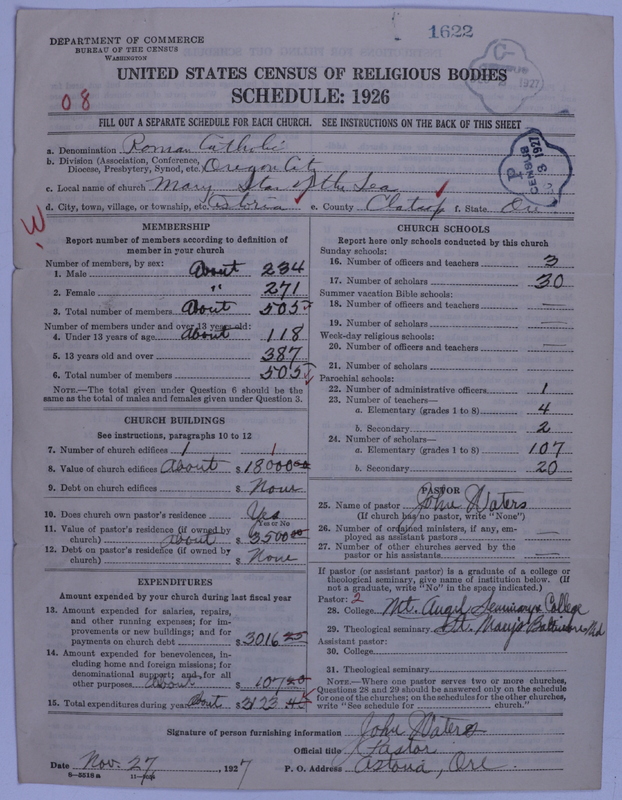 1622
DEPARTMENT OF COMMERCE
BUREAU OF THE CENSUS
WASHINGTON
UNITED STATES CENSUS OF RELIGIOUS BODIES
SCHEDULE: 1926
08
FILL OUT A SEPARATE SCHEDULE FOR EACH CHURCH. SEE INSTRUCTIONS ON THE BACK OF THIS SHEET
a. Denomination Roman Catholic
b. Division (Association, Conference,
Diocese, Presbytery, Synod, etc. Oregon City
c. Local name of church Mary Star of the Sea
d. City, town, village, or township, etc. Astoria e. County Clatsop f. State Ore
CENSUS
1927
W
MEMBERSHIP
Report number of members according to definition of
member in your church
Number of members, by sex:
1. Male About 234
2. Female " 271
3. Total number of members About 505
Number of members under and over 13 years old:
4. Under 13 years of age about 118
5. 13 years old and over 387
6. Total number of members 505
NOTE.—The total given under Question 6 should be the
same as the total of males and females given under Question 3.
CHURCH BUILDINGS
See instructions, paragraphs 10 to 12
7. Number of church edifices 1 1
8. Value of church edifices About $ 18000.00
9. Debt on church edifices $ None
10. Does church own pastor's residence Yes
Yes or No
11. Value of pastor's residence (if owned by
church) about $ 3500.00
12. Debt on pastor's residence (if owned by
church) $ None
EXPENDITURES
Amount expended by your church during last fiscal year
13. Amount expended for salaries, repairs,
and other running expenses; for im-
provements or new buildings; and for
payments on church debt $ 3016
14. Amount expended for benevolences, in-
cluding home and foreign missions; for
denominational support; and for all
other purposes about $ 107
15. Total expenditures during year About $ 3123
CHURCH SCHOOLS
Report here only schools conducted by this church
Sunday schools:
16. Number of officers and teachers 3
17. Number of scholars 30
Summer vacation Bible schools:
18. Number of officers and teachers —
19. Number of scholars —
Week-day religious schools:
20. Number of officers and teachers —
21. Number of scholars —
Parochial schools:
22. Number of administrative officers 1
23. Number of teachers—
a. Elementary (grades 1 to 8) 4
b. Secondary 2
24. Number of scholars—
a. Elementary (grades 1 to 8) 107
b. Secondary 20
PASTOR
25. Name of pastor John Waters
(If church has no pastor, write "None")
26. Number of ordained ministers, if any, em-
ployed as assistant pastors —
27. Number of other churches served by the
pastor or his assistants —
If pastor (or assistant pastor) is a graduate of a college or
theological seminary, give name of institution below. (If
not a graduate, write "No" in the space indicated.)
Pastor: 2
28. College Mt. Angel Seminary & College
29. Theological seminary St. Marys Baltimore Md
Assistant pastor:
30. College
31. Theological seminary
NOTE.—Where one pastor serves two or more churches,
Questions 28 and 29 should be answered only on the schedule
for one of the churches; on the schedules for the other churches,
write "See schedule for church."
Signature of person furnishing information John Waters
Official title Pastor
Date Nov. 27, 1927 P. O. Address Astoria, Ore.